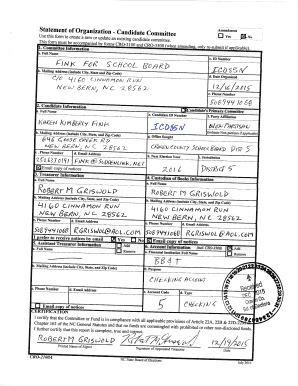 Statement of Organization - Candidate Committee
Amendment
Yes No
Use this form to create a new or update an existing candidate committee.
This form must be accompanied by forms CRO-3100 and CRO-3500 (when amending, only to submit if applicable).
1. Committee Information
a. Full Name
FINK FOR SCHOOL BOARD
c. ID Number
b. Mailing Address (Include City, State and Zip Code)
C/O 4160 CINNAMON RUN
NEW BERN, NC 28562
d. Date Organized
12/16/2015
e. Phone Number
5087441068
2. Candidate Information
Candidate's Primary Committee
a. Full Name
KAREN KIMBERLY FINK
e. Candidate ID Number
f. Party Affiliation
b. Mailing Address (Include City, State, and Zip Code)
GOOSE CREEK RD
NEW BERN, NC 28562
g. Office Sought
CRAVEN COUNTY SCHOOL BOARD DIST 5
c. Phone Number
d. Email Address
h. Next Election Year
i. Jurisdiction
2016
DISTRICT 5
Email copy of notices
3. Treasurer Information
4. Custodian of Books Information
a. Full Name
ROBERT M GRISWOLD
a. Full Name
ROBERT M GRISWOLD
b. Mailing Address (Include City, State, and Zip Code)
4160 CINNAMON RUN
NEW BERN, NC 28562
b. Mailing Address (Include City, State, and Zip Code)
4160 CINNAMON RUN
NEW BERN, NC 28562
c. Phone Number
d. Email Address
5087441068
RGRISWOLD@AOL.COM
c. Phone Number
d. Email Address
5087441068
RGRISWOLD@AOL.COM
I prefer to receive notices by email
Yes
No
Email copy of notices
5. Assistant Treasurer Information
Add
Remove
6. Account Information
Add
Remove
a. Full Name
a. Financial Institution Full Name
BB&T
b. Mailing Address (Include City, State, and Zip Code)
b. Purpose
CHECKING ACCOUNT
c. Phone Number
d. Email Address
c. Account Code
d. Type
5
CHECKING
Email copy of notices
Received
DEC 2015
CERTIFICATION
I certify that the Committee or Fund is in compliance with all applicable provisions of Article 22A, 22B & 22D-22M of
Chapter 163 of the NC General Statutes and that no funds are commingled with prohibited or other non-disclosed funds.
I further certify that this report is complete, true and correct.
ROBERT M GRISWOLD
12/19/2015
Printed Name of Signer
Signature of Appointed Treasurer
Date
CRO-2100A
NC State Board of Elections
July 2014